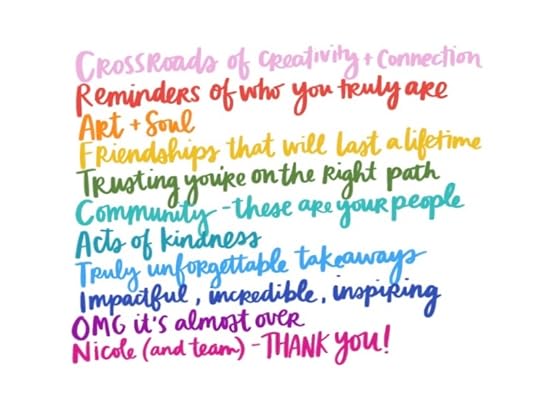 CROSSROADS of CREATIVITY + CONNECTION
Reminders of who you truly are
Art + Soul
Friendships that will last a lifetime
Trusting you're on the right path
Community - these are your people
Acts of kindness
Truly unforgettable takeaways
Impactful, incredible, inspiring
OMG it's almost over
Nicole (and team) - THANK YOU!